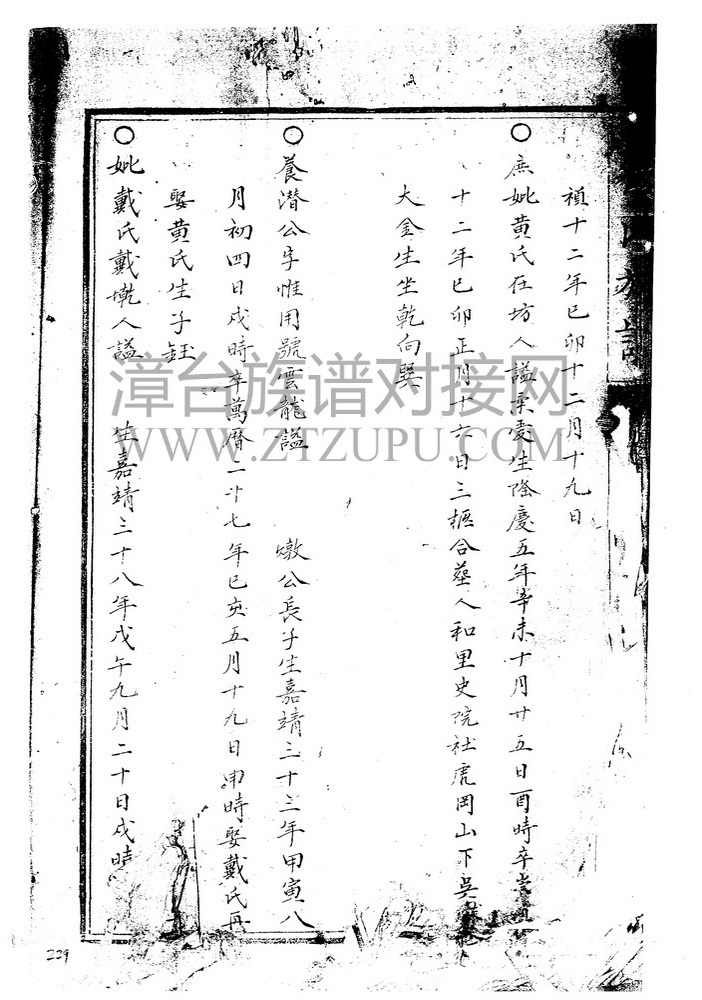 禎十二年巳卯十二月十九日
○庶妣黄氏在坊人謚 生隆慶五年辛未十月廿五日酉時卒崇
十二年巳卯正月十六日三柩合塟人和里史院社虎岡山下吳
大金生坐乾向巽
○養潜公字惟用號雲龍謚 墩公長子生嘉靖三十三年甲寅八
月初四日戌時卒萬曆二十七年巳亥五月十九日申時娶戴氏再
娶黄氏生子鈺
○妣戴氏戴墘人謚 生嘉靖三十八年戊午九月二十日戌時
漳台族谱对接网
WWW.ZTZUPU.COM
229